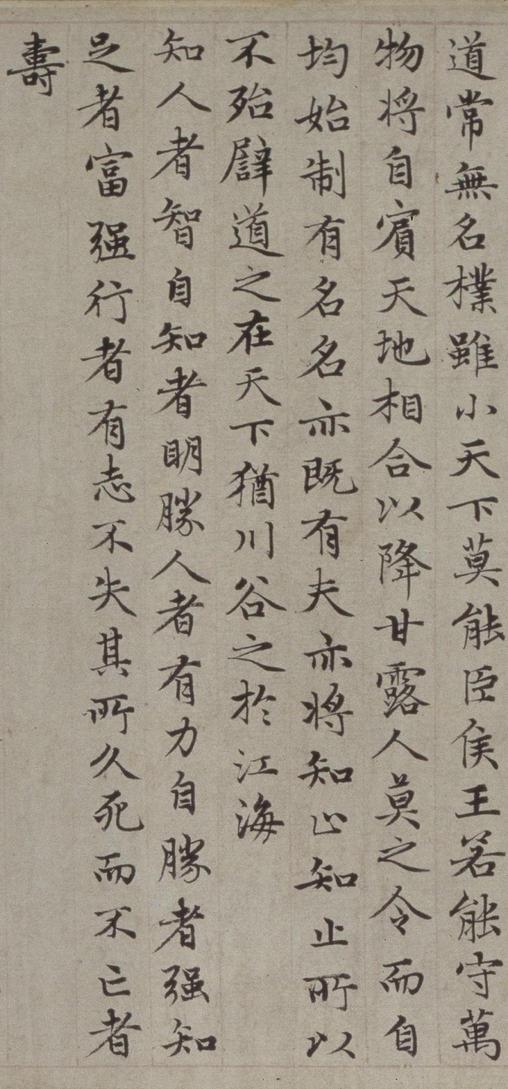 道常無名樸雖小天下莫能臣侯王若能守萬
物將自賓天地相合以降甘露人莫之令而自
均始制有名名亦既有夫亦將知止知止所以
不殆譬道之在天下猶川谷之於江海
知人者智自知者明勝人者有力自勝者强知
足者富强行者有志不失其所久死而不亡者
壽